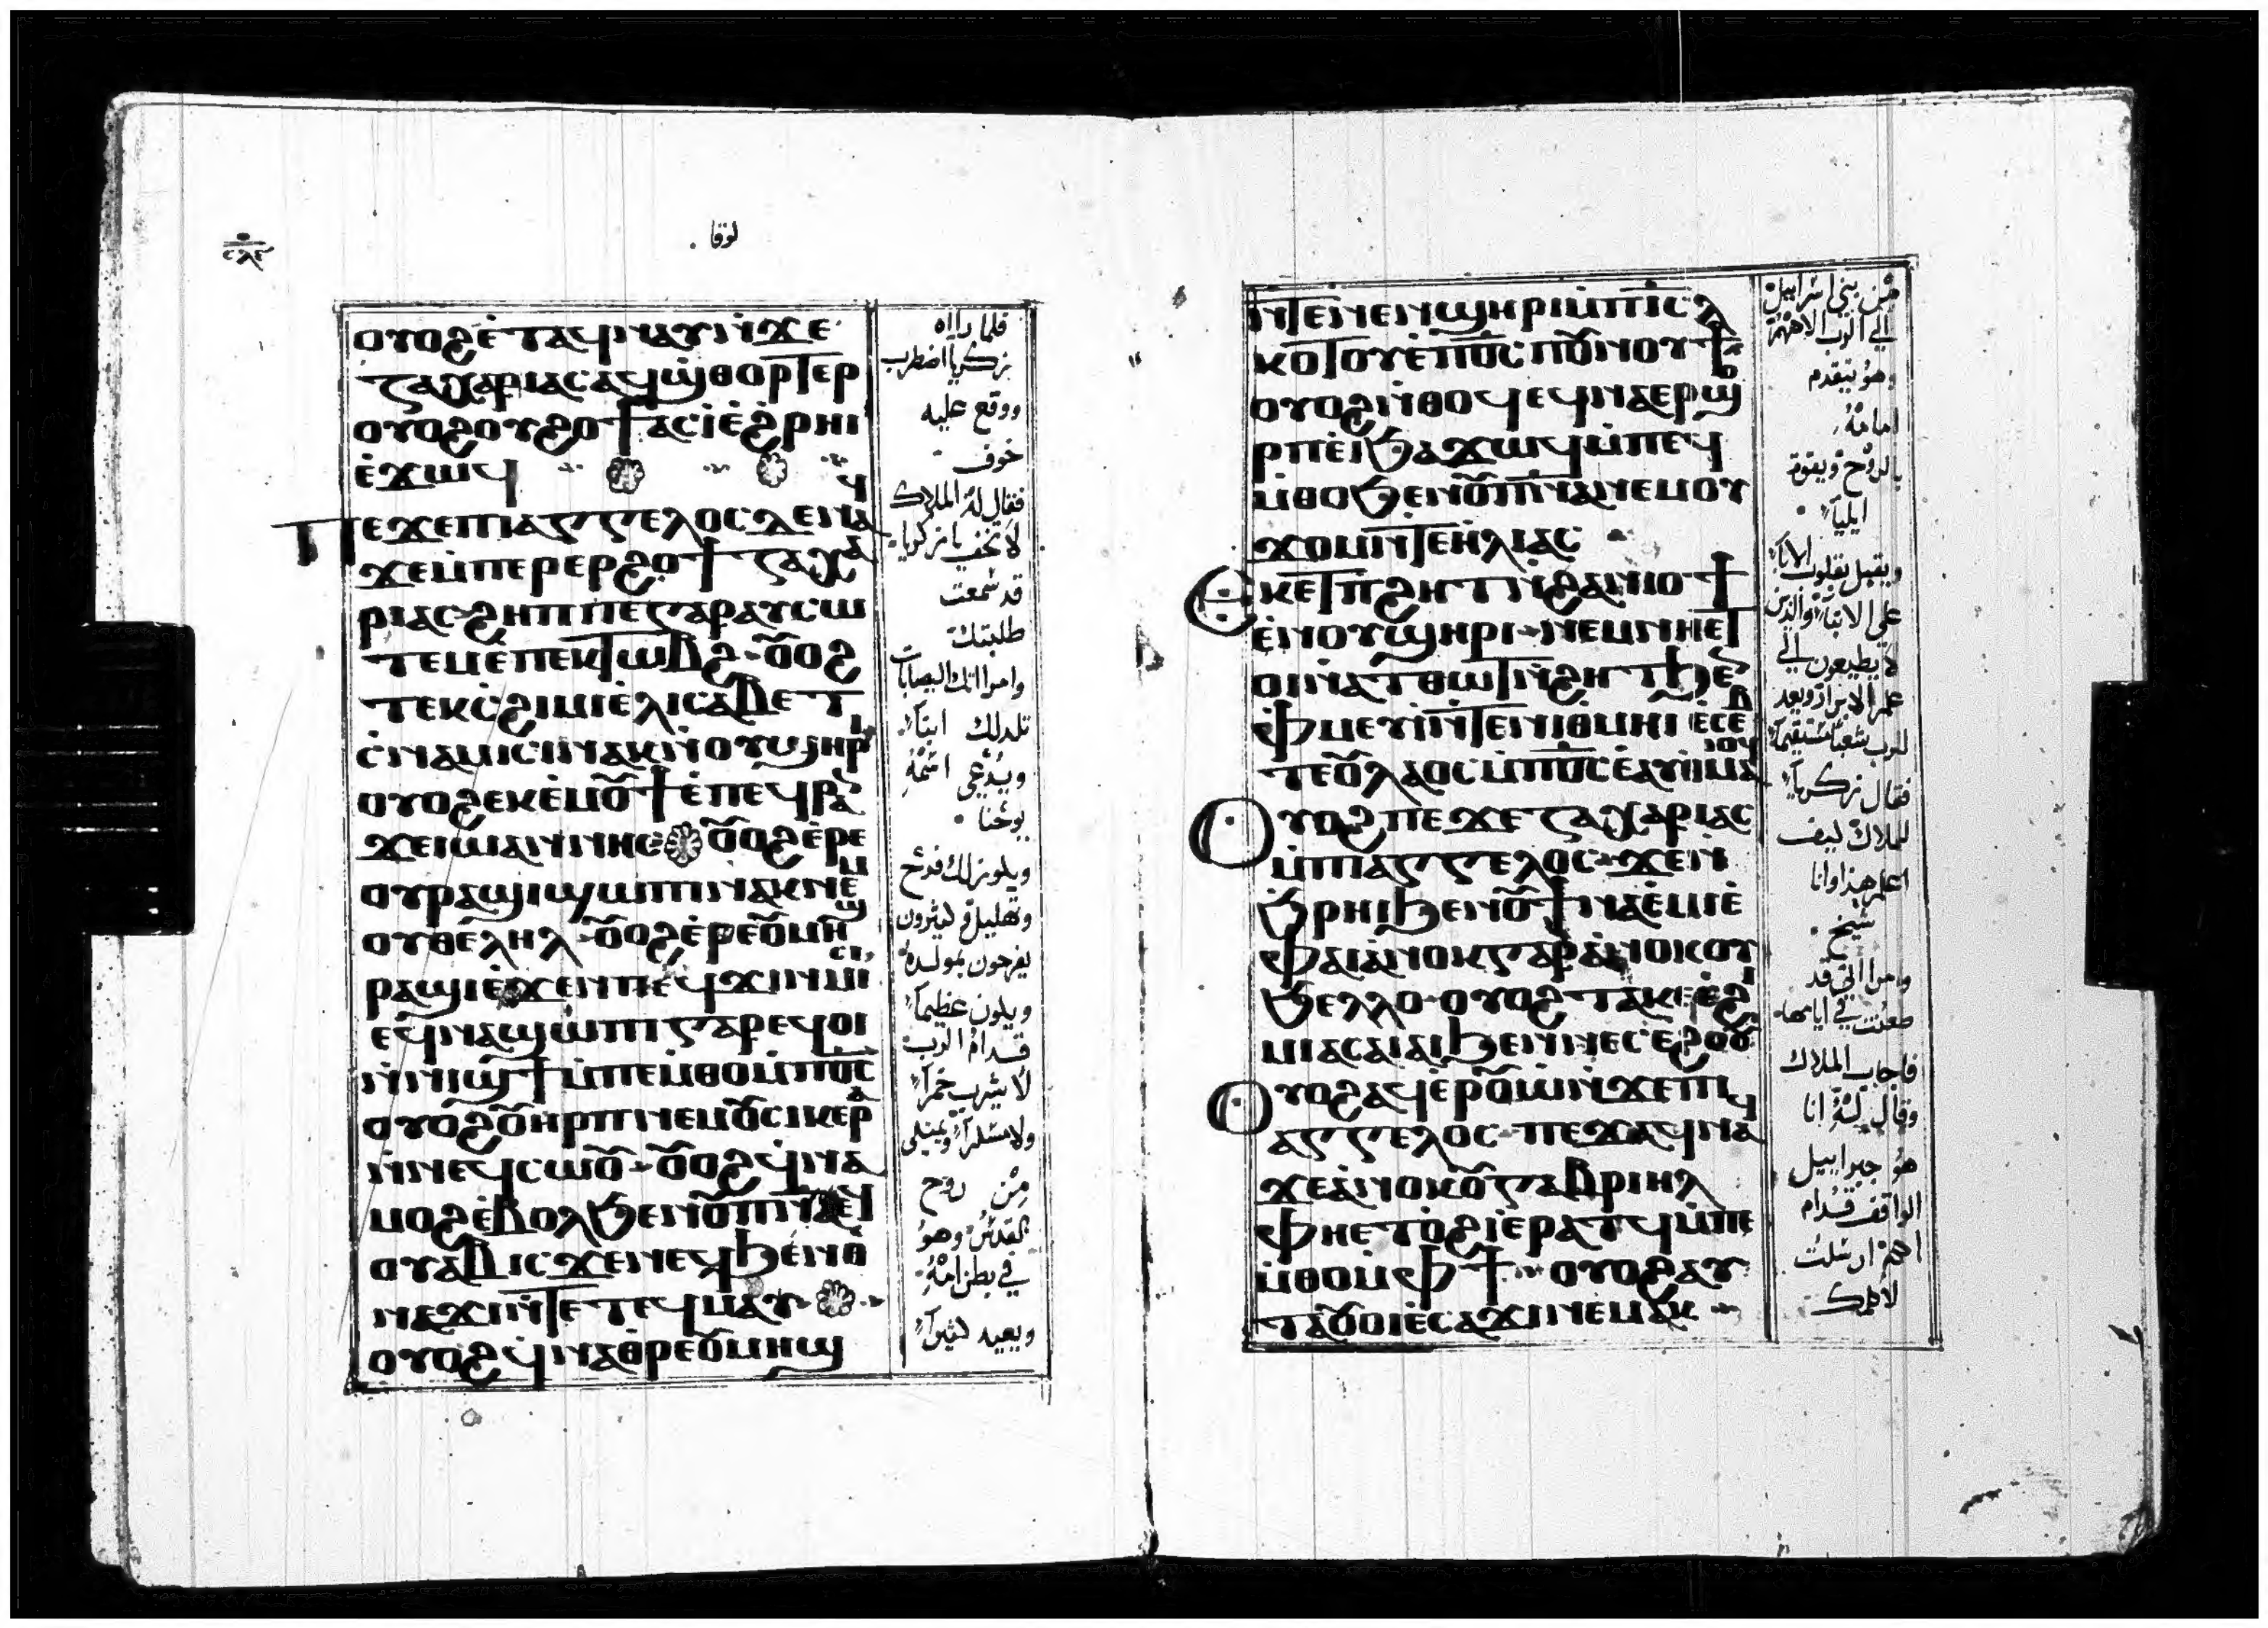 لوقا
ⲟⲩⲟϩ ⲉ̀ⲧⲁϥⲛⲁⲩ ⲛ̀ϫⲉ
ⲍⲁⲭⲁⲣⲓⲁⲥ ⲁϥϣ̀ⲑⲟⲣⲧⲉⲣ
ⲟⲩⲟϩ ⲟⲩϩⲟϯ ⲁⲥⲓ̀ ⲉ̀ϩ̀ⲣⲏⲓ
ⲉ̀ϫⲱϥ
ⲡⲉϫⲉ ⲡⲓⲁⲅⲅⲉⲗⲟⲥ ⲇⲉ ⲛⲁϥ
ϫⲉ ⲙ̀ⲡⲉⲣⲉⲣϩⲟϯ ⲍⲁⲭⲁ
ⲣⲓⲁⲥ ϩⲏⲡⲡⲉ ⲅⲁⲣ ⲁⲩⲥⲱ
ⲧⲉⲙ ⲉ̀ⲡⲉⲕⲧⲱⲃϩ ⲟⲩⲟϩ
ⲧⲉⲕⲥ̀ϩⲓⲙⲓ ⲉ̀ⲗⲓⲥⲁⲃⲉⲧ
ⲥ̀ⲛⲁⲙⲓⲥⲓ ⲛⲁⲕ ⲛ̀ⲟⲩϣⲏⲣⲓ
ⲟⲩⲟϩ ⲉⲕⲉ̀ⲙⲟⲩϯ ⲉ̀ⲡⲉϥⲣⲁ
ϫⲉ ⲓⲱⲁⲛⲛⲏⲥ ⲟⲩⲟϩ ⲉ̀ⲣⲉ
ⲟⲩⲣⲁϣⲓ ϣⲱⲡⲓ ⲛⲁⲕ ⲛⲉⲙ
ⲟⲩⲑⲉⲗⲏⲗ ⲟⲩⲟϩ ⲉ̀ⲣⲉ ⲟⲩⲙⲏϣ
ⲣⲁϣⲓ ⲉ̀ϫⲉⲛ ⲡⲉϥϫⲓⲛⲙⲓⲥⲓ
ⲉϥⲛⲁϣⲱⲡⲓ ⲅⲁⲣ ⲉϥⲟⲓ
ⲛ̀ⲛⲓϣϯ ⲙ̀ⲡⲉⲙ̀ⲑⲟ ⲙ̀ⲡϭⲟⲓⲥ
ⲟⲩⲟϩ ⲟⲩⲏⲣⲡ ⲛⲉⲙ ⲟⲩⲥⲓⲕⲉⲣⲁ
ⲛ̀ⲛⲉϥⲥⲱⲟⲩ ⲟⲩⲟϩ ϥ̀ⲛⲁ
ⲙⲟϩ ⲉ̀ⲃⲟⲗ ϧⲉⲛ ⲟⲩⲡⲛⲁ ⲉϥ
ⲟⲩⲁⲃ ⲓⲥϫⲉⲛ ⲉϥϧⲉⲛ ⲑ̀
ⲛⲉϫⲓ ⲛ̀ⲧⲉ ⲧⲉϥⲙⲁⲩ
ⲟⲩⲟϩ ϥ̀ⲛⲁⲑ̀ⲣⲉ ⲟⲩⲙⲏϣ
فلما راه
زكريا اضطرب
ووقع عليه
خوف
فقال له الملاك
لا تخف يا زكريا
قد سمعت
طلبتك
وامراتك اليصابات
تلد لك ابناً
ويدعى اسمه
يوحنا
ويكون لك فرح
وتهليل وكثيرون
يفرحون بمولده
ويكون عظيماً
قدام الرب
لا يشرب خمراً
ولا مسكراً ويمتلي
من روح
القدس وهو
في بطن امه
ويعيد كثيراً
ⲛ̀ⲧⲉ ⲛⲉⲛϣⲏⲣⲓ ⲙ̀ⲡⲓⲥⲗ
ⲕⲟⲧⲟⲩ ⲉ̀ⲡϭⲟⲓⲥ ⲡⲟⲩⲛⲟⲩϯ
ⲟⲩⲟϩ ⲛ̀ⲑⲟϥ ⲉϥⲛⲁⲉⲣϣⲟ
ⲣⲡ ⲉ̀ⲓ ϧⲁϫⲱϥ ⲙ̀ⲡⲉϥ
ⲙ̀ⲑⲟ ϧⲉⲛ ⲟⲩⲡⲛⲁ ⲛⲉⲙ ⲟⲩ
ϫⲟⲙ ⲛ̀ⲧⲉ ⲏⲗⲓⲁⲥ
ⲉⲕⲉⲧ ⲡϩⲏⲧ ⲛⲓϩⲁⲛⲓⲟϯ
ⲉ̀ⲛⲟⲩϣⲏⲣⲓ ⲛⲉⲙ ⲛⲏⲉⲧ
ⲟⲓ ⲛⲁⲧⲑⲱⲧ ⲛ̀ϩⲏⲧ ϧⲉⲛ
ⲫ̀ⲙⲉⲩⲓ̀ ⲛ̀ⲧⲉ ⲛⲓⲑⲙⲏⲓ ⲉ̀ⲥⲉⲃ
ⲧⲉ ⲟⲩⲗⲁⲟⲥ ⲙ̀ⲡϭⲟⲓⲥ ⲉⲁϥ
ⲟⲩⲟϩ ⲡⲉϫⲉ ⲍⲁⲭⲁⲣⲓⲁⲥ
ⲙ̀ⲡⲓⲁⲅⲅⲉⲗⲟⲥ ϫⲉ ⲛ̀
ϧ̀ⲣⲏⲓ ϧⲉⲛ ⲟⲩ ϯⲛⲁⲉ̀ⲙⲓ ⲉ̀
ⲫⲁⲓ ⲁ̀ⲛⲟⲕ ⲅⲁⲣ ⲁ̀ⲛⲟⲕ ⲟⲩ
ϧⲉⲗⲗⲟ ⲟⲩⲟϩ ⲧⲁⲕⲉⲥ̀ϩⲓ
ⲙⲓ ⲁⲥⲁⲓⲁⲓ ϧⲉⲛ ⲛⲉⲥⲉ̀ϩⲟⲟⲩ
ⲟⲩⲟϩ ⲁϥⲉⲣⲟⲩⲱ̀ ⲛ̀ϫⲉ ⲡⲓ
ⲁⲅⲅⲉⲗⲟⲥ ⲡⲉϫⲁϥ ⲛⲁϥ
ϫⲉ ⲁ̀ⲛⲟⲕ ⲟⲩ ⲅⲁⲃⲣⲓⲏⲗ
ⲫⲏⲉⲧⲟϩⲓ ⲉⲣⲁⲧϥ ⲙ̀ⲡⲉ
ⲙ̀ⲑⲟ ⲙ̀ⲫϯ ⲟⲩⲟϩ ⲁⲩ
ⲧⲁⲟⲩⲟⲓ ⲉ̀ⲥⲁϫⲓ ⲛⲉⲙⲁⲕ
من بني اسراييل
الي الرب الاههم
وهو يتقدم
امامه
بالروح وبقوة
ايليا
ويقبل بقلوب الابا
علي الابنا والذين
لا يطيعون الي
علم الابرار ويعد
للرب شعباً مستقيماً
فقال زكريا
للملاك كيف
اعلم هذا وانا
شيخ
وامراتي قد
طعنت في ايامها
فاجاب الملاك
وقال له انا
هو جبراييل
الواقف قدام
الله ارسلت
لاكلمك